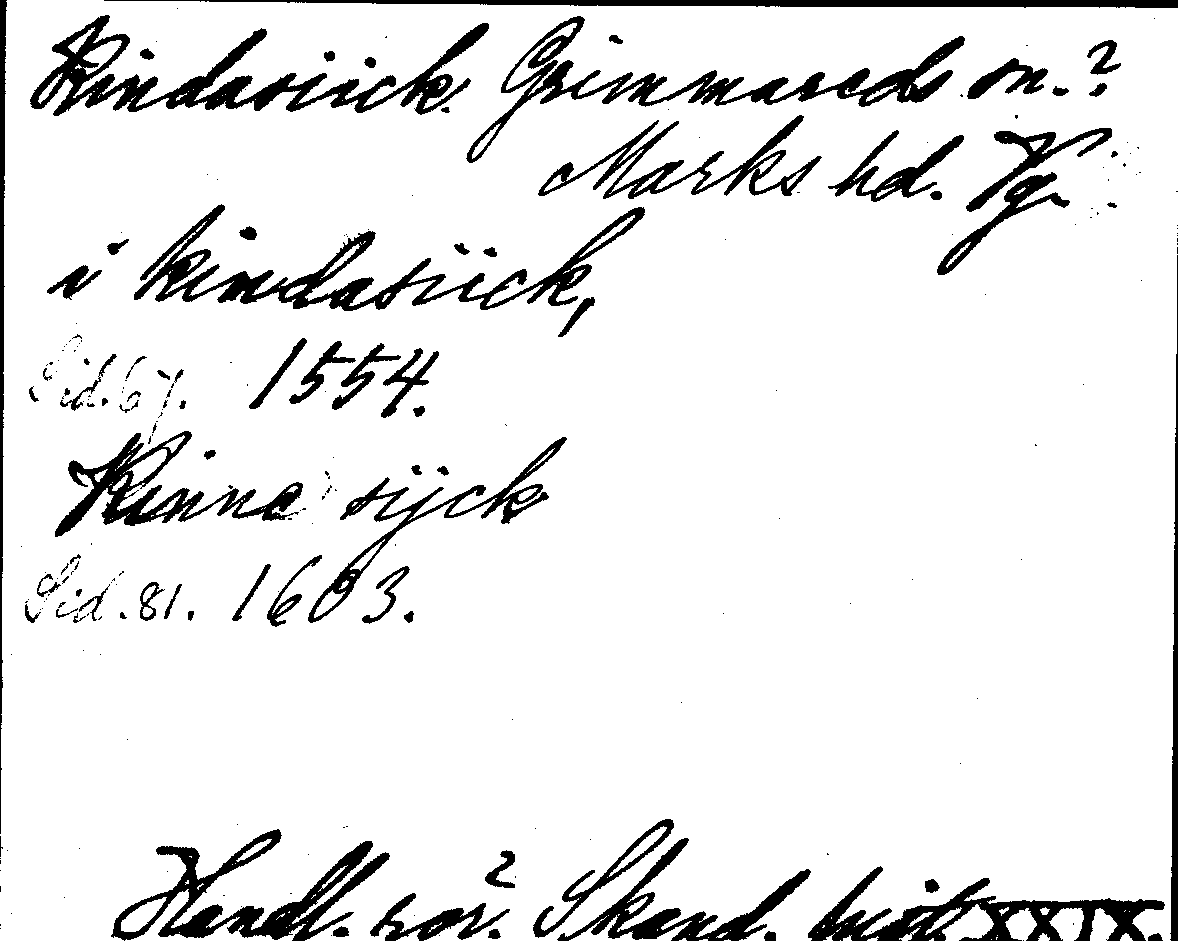 Kindasiick. Grimmareds sn.?
Marks hd. Vg.
i kindasiick,
Sid. 67. 1554.
Kinne sijck
Sid. 81. 1603.
Handl. rör. Skand. hist. XXIX.